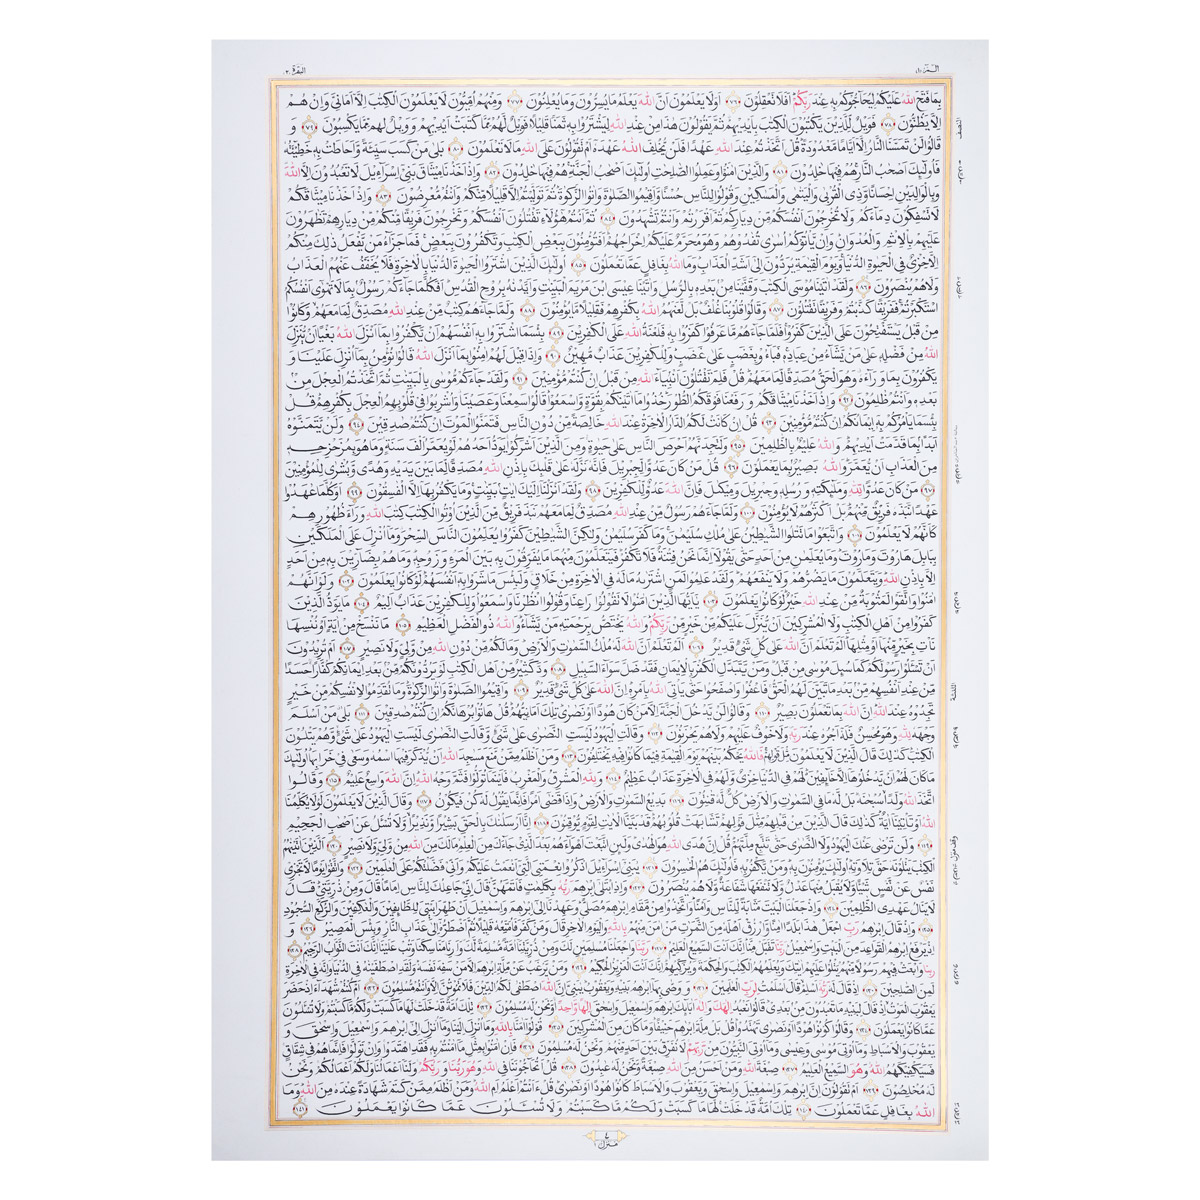 الٓمّٓ ١
البقرة ٢
بما فتح الله عليكم ليحاجوكم به عند ربكم افلا تعقلون ﴿٧٦﴾ اولا يعلمون ان الله يعلم ما يسرون وما يعلنون ﴿٧٧﴾ ومنهم اميون لا يعلمون الكتب الا اماني وان هم
الا يظنون ﴿٧٨﴾ فويل للذين يكتبون الكتب بايديهم ثم يقولون هذا من عند الله ليشتروا به ثمنا قليلا فويل لهم مما كتبت ايديهم وويل لهم مما يكسبون ﴿٧٩﴾ و
قالوا لن تمسنا النار الا اياما معدودة قل اتخذتم عند الله عهدا فلن يخلف الله عهده ام تقولون على الله ما لا تعلمون ﴿٨٠﴾ بلى من كسب سيئة واحاطت به خطيئته
فاولئك اصحب النار هم فيها خلدون ﴿٨١﴾ والذين امنوا وعملوا الصلحت اولئك اصحب الجنة هم فيها خلدون ﴿٨٢﴾ واذ اخذنا ميثاق بني اسراءيل لا تعبدون الا الله
وبالوالدين احسانا وذي القربى واليتمى والمسكين وقولوا للناس حسنا واقيموا الصلوة واتوا الزكوة ثم توليتم الا قليلا منكم وانتم معرضون ﴿٨٣﴾ واذ اخذنا ميثاقكم
لا تسفكون دماءكم ولا تخرجون انفسكم من دياركم ثم اقررتم وانتم تشهدون ﴿٨٤﴾ ثم انتم هؤلاء تقتلون انفسكم وتخرجون فريقا منكم من ديارهم تظهرون
عليهم بالاثم والعدوان وان ياتوكم اسرى تفدوهم وهو محرم عليكم اخراجهم افتؤمنون ببعض الكتب وتكفرون ببعض فما جزاء من يفعل ذلك منكم
الا خزي في الحيوة الدنيا ويوم القيمة يردون الى اشد العذاب وما الله بغافل عما تعملون ﴿٨٥﴾ اولئك الذين اشتروا الحيوة الدنيا بالاخرة فلا يخفف عنهم العذاب
ولا هم ينصرون ﴿٨٦﴾ ولقد اتينا موسى الكتب وقفينا من بعده بالرسل واتينا عيسى ابن مريم البينت وايدنه بروح القدس افكلما جاءكم رسول بما لا تهوى انفسكم
استكبرتم ففريقا كذبتم وفريقا تقتلون ﴿٨٧﴾ وقالوا قلوبنا غلف بل لعنهم الله بكفرهم فقليلا ما يؤمنون ﴿٨٨﴾ ولما جاءهم كتب من عند الله مصدق لما معهم وكانوا
من قبل يستفتحون على الذين كفروا فلما جاءهم ما عرفوا كفروا به فلعنة الله على الكفرين ﴿٨٩﴾ بئسما اشتروا به انفسهم ان يكفروا بما انزل الله بغيا ان ينزل
الله من فضله على من يشاء من عباده فباءو بغضب على غضب وللكفرين عذاب مهين ﴿٩٠﴾ واذا قيل لهم امنوا بما انزل الله قالوا نؤمن بما انزل علينا و
يكفرون بما وراءه وهو الحق مصدقا لما معهم قل فلم تقتلون انبياء الله من قبل ان كنتم مؤمنين ﴿٩١﴾ ولقد جاءكم موسى بالبينت ثم اتخذتم العجل من
بعده وانتم ظلمون ﴿٩٢﴾ واذ اخذنا ميثاقكم ورفعنا فوقكم الطور خذوا ما اتينكم بقوة واسمعوا قالوا سمعنا وعصينا واشربوا في قلوبهم العجل بكفرهم قل
بئسما يامركم به ايمانكم ان كنتم مؤمنين ﴿٩٣﴾ قل ان كانت لكم الدار الاخرة عند الله خالصة من دون الناس فتمنوا الموت ان كنتم صدقين ﴿٩٤﴾ ولن يتمنوه
ابدا بما قدمت ايديهم والله عليم بالظلمين ﴿٩٥﴾ ولتجدنهم احرص الناس على حيوة ومن الذين اشركوا يود احدهم لو يعمر الف سنة وما هو بمزحزحه
من العذاب ان يعمر والله بصير بما يعملون ﴿٩٦﴾ قل من كان عدوا لجبريل فانه نزله على قلبك باذن الله مصدقا لما بين يديه وهدى وبشرى للمؤمنين
﴿٩٧﴾ من كان عدوا لله وملئكته ورسله وجبريل وميكل فان الله عدو للكفرين ﴿٩٨﴾ ولقد انزلنا اليك ايت بينت وما يكفر بها الا الفسقون ﴿٩٩﴾ اوكلما عهدوا
عهدا نبذه فريق منهم بل اكثرهم لا يؤمنون ﴿١٠٠﴾ ولما جاءهم رسول من عند الله مصدق لما معهم نبذ فريق من الذين اوتوا الكتب كتب الله وراء ظهورهم
كانهم لا يعلمون ﴿١٠١﴾ واتبعوا ما تتلوا الشيطين على ملك سليمن وما كفر سليمن ولكن الشيطين كفروا يعلمون الناس السحر وما انزل على الملكين
ببابل هاروت وماروت وما يعلمن من احد حتى يقولا انما نحن فتنة فلا تكفر فيتعلمون منهما ما يفرقون به بين المرء وزوجه وما هم بضارين به من احد
الا باذن الله ويتعلمون ما يضرهم ولا ينفعهم ولقد علموا لمن اشترىه ما له في الاخرة من خلاق ولبئس ما شروا به انفسهم لو كانوا يعلمون ﴿١٠٢﴾ ولو انهم
امنوا واتقوا لمثوبة من عند الله خير لو كانوا يعلمون ﴿١٠٣﴾ يايها الذين امنوا لا تقولوا راعنا وقولوا انظرنا واسمعوا وللكفرين عذاب اليم ﴿١٠٤﴾ ما يود الذين
كفروا من اهل الكتب ولا المشركين ان ينزل عليكم من خير من ربكم والله يختص برحمته من يشاء والله ذو الفضل العظيم ﴿١٠٥﴾ ما ننسخ من اية او ننسها
نات بخير منها او مثلها الم تعلم ان الله على كل شيء قدير ﴿١٠٦﴾ الم تعلم ان الله له ملك السموت والارض وما لكم من دون الله من ولي ولا نصير ﴿١٠٧﴾ ام تريدون
ان تسئلوا رسولكم كما سئل موسى من قبل ومن يتبدل الكفر بالايمان فقد ضل سواء السبيل ﴿١٠٨﴾ ود كثير من اهل الكتب لو يردونكم من بعد ايمانكم كفارا حسدا
من عند انفسهم من بعد ما تبين لهم الحق فاعفوا واصفحوا حتى ياتي الله بامره ان الله على كل شيء قدير ﴿١٠٩﴾ واقيموا الصلوة واتوا الزكوة وما تقدموا لانفسكم من خير
تجدوه عند الله ان الله بما تعملون بصير ﴿١١٠﴾ وقالوا لن يدخل الجنة الا من كان هودا او نصرى تلك امانيهم قل هاتوا برهانكم ان كنتم صدقين ﴿١١١﴾ بلى من اسلم
وجهه لله وهو محسن فله اجره عند ربه ولا خوف عليهم ولا هم يحزنون ﴿١١٢﴾ وقالت اليهود ليست النصرى على شيء وقالت النصرى ليست اليهود على شيء وهم يتلون
الكتب كذلك قال الذين لا يعلمون مثل قولهم فالله يحكم بينهم يوم القيمة فيما كانوا فيه يختلفون ﴿١١٣﴾ ومن اظلم ممن منع مسجد الله ان يذكر فيها اسمه وسعى في خرابها اولئك
ما كان لهم ان يدخلوها الا خائفين لهم في الدنيا خزي ولهم في الاخرة عذاب عظيم ﴿١١٤﴾ ولله المشرق والمغرب فاينما تولوا فثم وجه الله ان الله واسع عليم ﴿١١٥﴾ وقالوا
اتخذ الله ولدا سبحنه بل له ما في السموت والارض كل له قنتون ﴿١١٦﴾ بديع السموت والارض واذا قضى امرا فانما يقول له كن فيكون ﴿١١٧﴾ وقال الذين لا يعلمون لولا يكلمنا
الله او تاتينا اية كذلك قال الذين من قبلهم مثل قولهم تشابهت قلوبهم قد بينا الايت لقوم يوقنون ﴿١١٨﴾ انا ارسلنك بالحق بشيرا ونذيرا ولا تسئل عن اصحب الجحيم
﴿١١٩﴾ ولن ترضى عنك اليهود ولا النصرى حتى تتبع ملتهم قل ان هدى الله هو الهدى ولئن اتبعت اهواءهم بعد الذي جاءك من العلم ما لك من الله من ولي ولا نصير ﴿١٢٠﴾ الذين اتينهم
الكتب يتلونه حق تلاوته اولئك يؤمنون به ومن يكفر به فاولئك هم الخسرون ﴿١٢١﴾ يبني اسراءيل اذكروا نعمتي التي انعمت عليكم واني فضلتكم على العلمين ﴿١٢٢﴾ واتقوا يوما لا تجزي
نفس عن نفس شيئا ولا يقبل منها عدل ولا تنفعها شفاعة ولا هم ينصرون ﴿١٢٣﴾ واذ ابتلى ابرهم ربه بكلمت فاتمهن قال اني جاعلك للناس اماما قال ومن ذريتي قال
لا ينال عهدي الظلمين ﴿١٢٤﴾ واذ جعلنا البيت مثابة للناس وامنا واتخذوا من مقام ابرهم مصلى وعهدنا الى ابرهم واسمعيل ان طهرا بيتي للطائفين والعكفين والركع السجود
﴿١٢٥﴾ واذ قال ابرهم رب اجعل هذا بلدا امنا وارزق اهله من الثمرت من امن منهم بالله واليوم الاخر قال ومن كفر فامتعه قليلا ثم اضطره الى عذاب النار وبئس المصير ﴿١٢٦﴾ و
اذ يرفع ابرهم القواعد من البيت واسمعيل ربنا تقبل منا انك انت السميع العليم ﴿١٢٧﴾ ربنا واجعلنا مسلمين لك ومن ذريتنا امة مسلمة لك وارنا مناسكنا وتب علينا انك انت التواب الرحيم ﴿١٢٨﴾
ربنا وابعث فيهم رسولا منهم يتلوا عليهم ايتك ويعلمهم الكتب والحكمة ويزكيهم انك انت العزيز الحكيم ﴿١٢٩﴾ ومن يرغب عن ملة ابرهم الا من سفه نفسه ولقد اصطفينه في الدنيا وانه في الاخرة
لمن الصلحين ﴿١٣٠﴾ اذ قال له ربه اسلم قال اسلمت لرب العلمين ﴿١٣١﴾ ووصى بها ابرهم بنيه ويعقوب يبني ان الله اصطفى لكم الدين فلا تموتن الا وانتم مسلمون ﴿١٣٢﴾ ام كنتم شهداء اذ حضر
يعقوب الموت اذ قال لبنيه ما تعبدون من بعدي قالوا نعبد الهك واله ابائك ابرهم واسمعيل واسحق الها واحدا ونحن له مسلمون ﴿١٣٣﴾ تلك امة قد خلت لها ما كسبت ولكم ما كسبتم ولا تسئلون
عما كانوا يعملون ﴿١٣٤﴾ وقالوا كونوا هودا او نصرى تهتدوا قل بل ملة ابرهم حنيفا وما كان من المشركين ﴿١٣٥﴾ قولوا امنا بالله وما انزل الينا وما انزل الى ابرهم واسمعيل واسحق و
يعقوب والاسباط وما اوتي موسى وعيسى وما اوتي النبيون من ربهم لا نفرق بين احد منهم ونحن له مسلمون ﴿١٣٦﴾ فان امنوا بمثل ما امنتم به فقد اهتدوا وان تولوا فانما هم في شقاق
فسيكفيكهم الله وهو السميع العليم ﴿١٣٧﴾ صبغة الله ومن احسن من الله صبغة ونحن له عبدون ﴿١٣٨﴾ قل اتحاجوننا في الله وهو ربنا وربكم ولنا اعمالنا ولكم اعمالكم ونحن
له مخلصون ﴿١٣٩﴾ ام تقولون ان ابرهم واسمعيل واسحق ويعقوب والاسباط كانوا هودا او نصرى قل ءانتم اعلم ام الله ومن اظلم ممن كتم شهادة عنده من الله وما
الله بغافل عما تعملون ﴿١٤٠﴾ تلك امة قد خلت لها ما كسبت ولكم ما كسبتم ولا تسئلون عما كانوا يعملون ﴿١٤١﴾
النصف
الثلثة
منزل